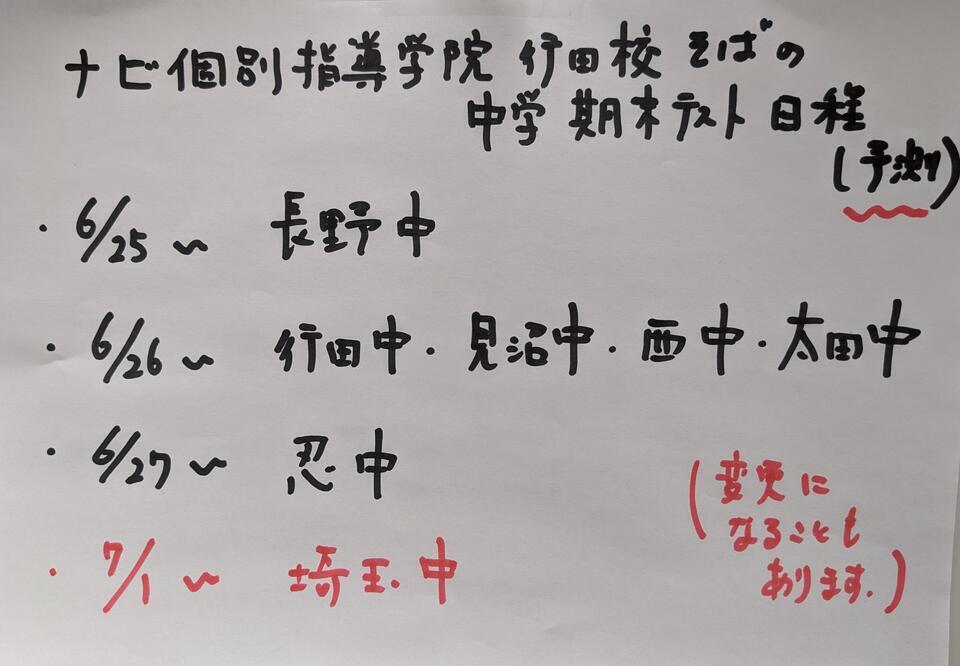 ナビ個別指導学院 行田校 そばの
中学 期末テスト 日程
(予測)
・6/25～ 長野中
・6/26～ 行田中・見沼中・西中・太田中
・6/27～ 忍中
・7/1～ 埼玉中
(変更に
なることも
あります.)